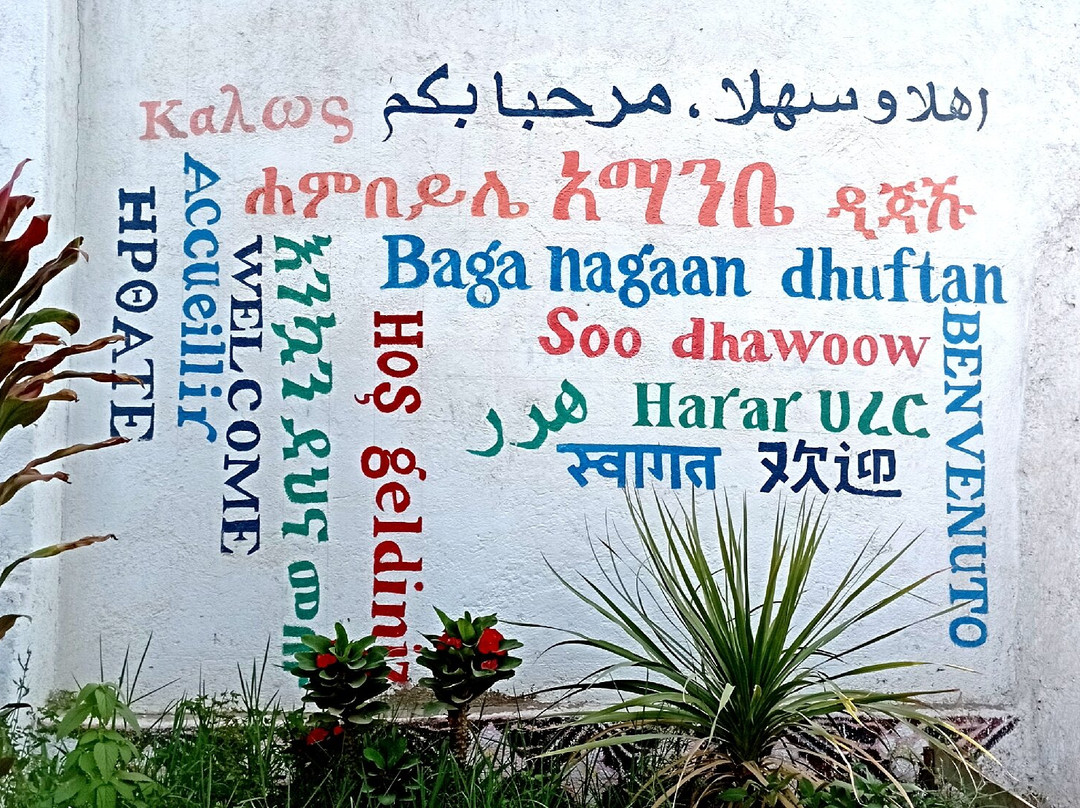 Καλως
اهلا وسهلا ، مرحبا بكم
ሐምበይሌ አማንቤ
Baga nagaan dhuftan
Soo dhawoow
هرر Harar ሀረር
स्वागत 欢迎
HPΘATE
Accueillir
WELCOME
እንኳን ደህና
Hoş geldiniz
BENVENUTO